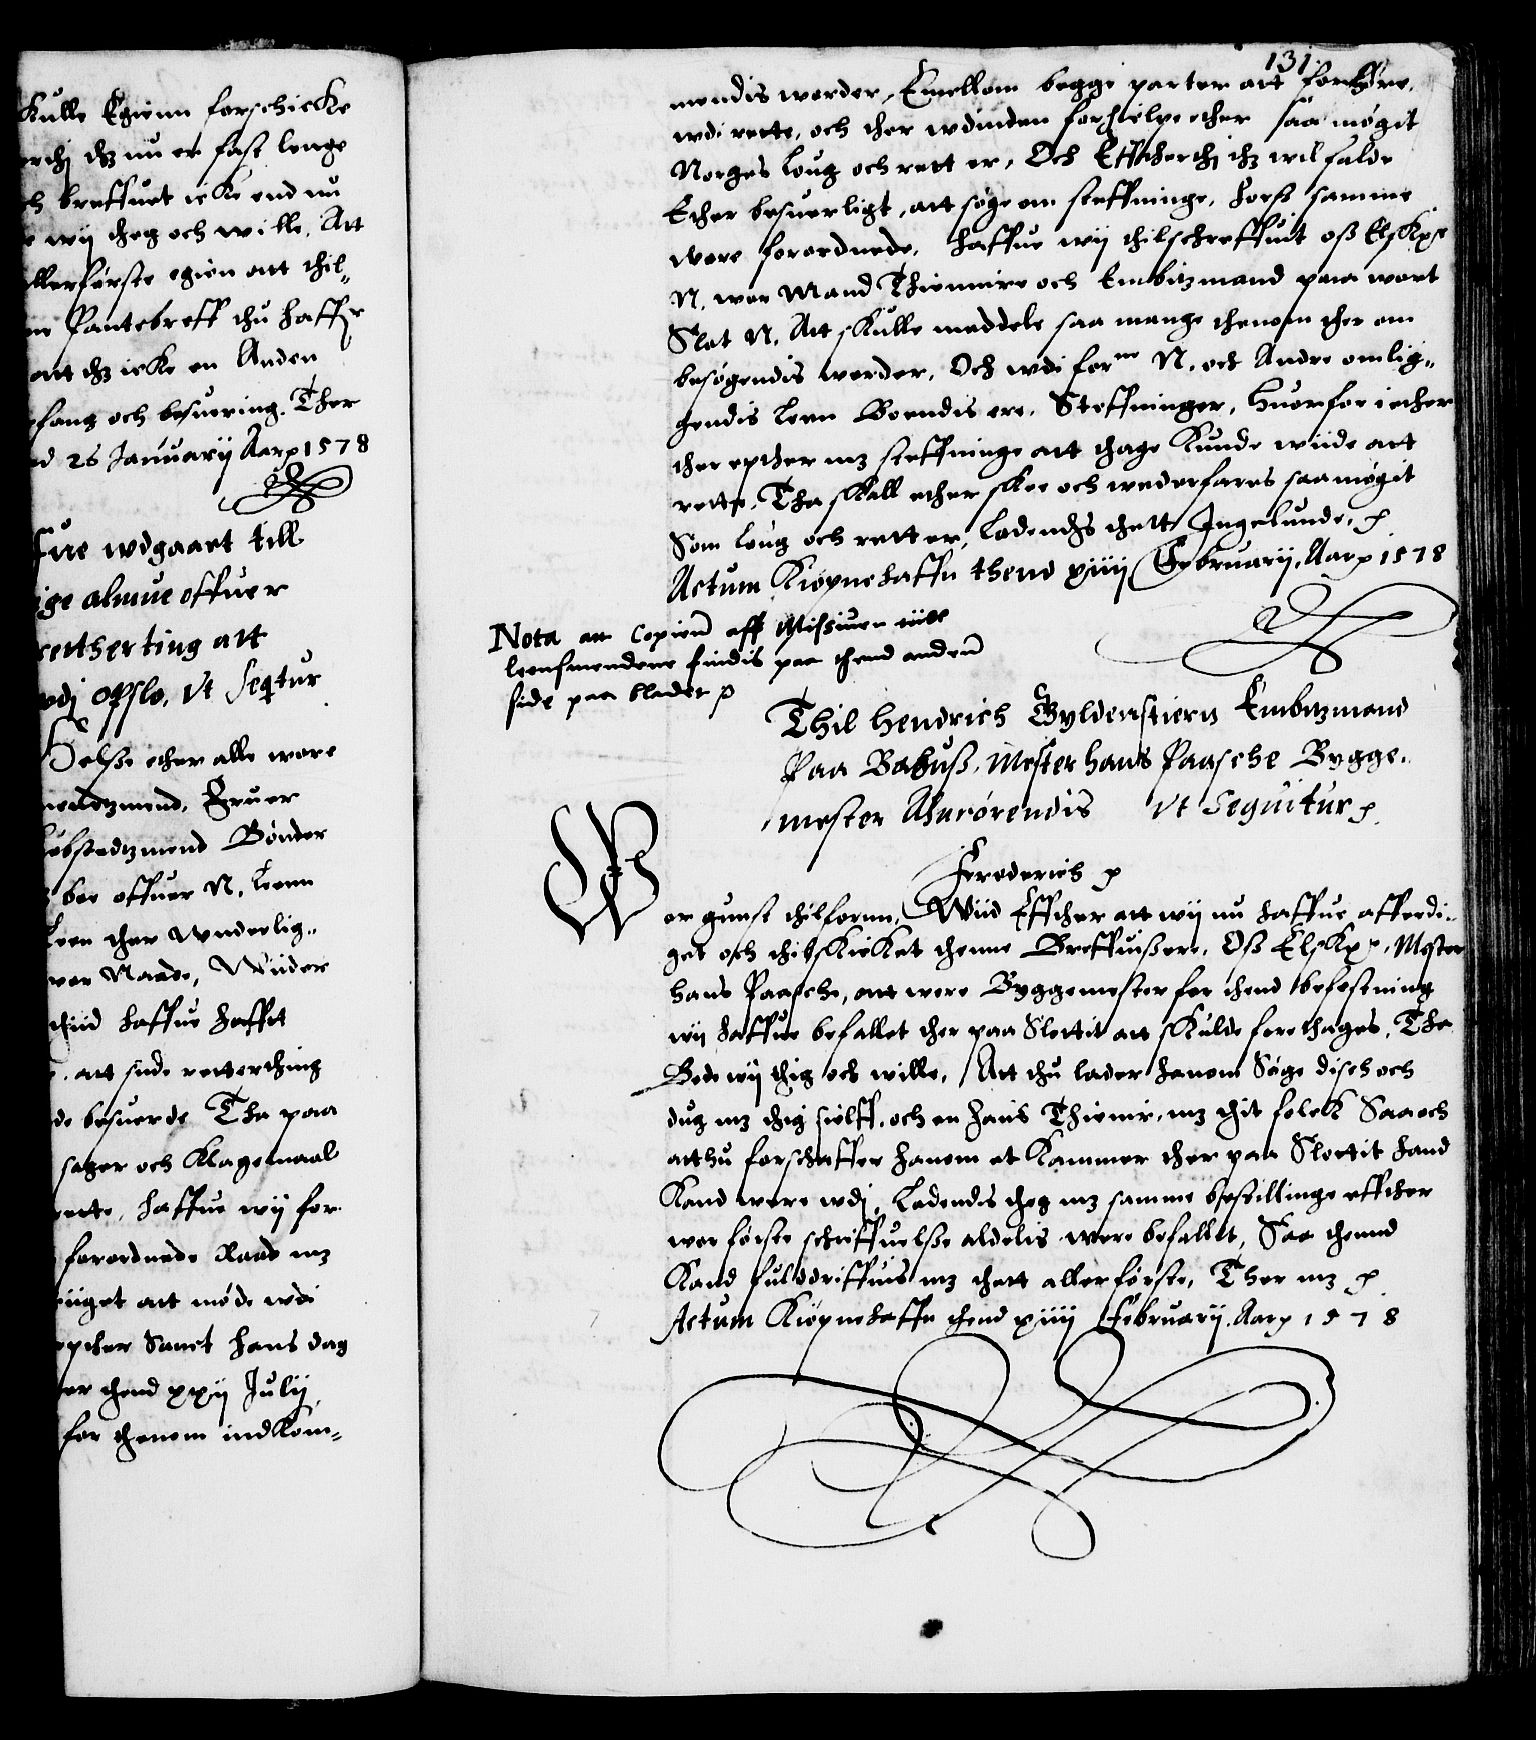 Kulle Egienn forschicke
dz nu er fast lenge
breffuet icke end nu
wij theg och wille, Att
allerførste egien att thil¬
Pantebreff thu haffr
att dz icke en Anden
fang och besuering. Ther
26 Januarij Aarp 1578
udgaaet till
ige almue offuer
retherting att
udj Opslo, Vt Seqtur
Helsse ether alle wore
Fruer
Kiøbstedtzmend Bønder
boe offuer N. Leenn
Leen ther wnderlig¬
wor Naade, Wiider
thiid haffue hafft
att side retterthing
besuerde Tha paa
sager och Klagemaal
rette, haffue wij for
forordnede Raad mz
att møde wdi
epther Sanct Hans dag
er thend xxij Julij
for thenom indkom¬
131
mendis worder, Emellom begge parter att forhøre,
wdi rette, och ther wdinden forhielpe ether saa møgit
Norges Loug och rett er, Och Effthertj thz wil falde
Ether besuerligt, att søge om steffninge, forst samme
wore forordnede, haffue wij thilschreffuit oss Elskxe
N. wor Mand Thiennire och Embitzmand paa wort
Slot N. Att skulle meddele saa mange thenom ther om
besøgendis worder, Och wdi forne N. och Andre omlig¬
gendis Leen Boendis ere, Steffninger, Huorfor i ether
ther epther mz steffninge att thage Kunde wiide att
rette, Tha skall ether skee och wederfares saa møgit
Som loug och rett er, Ladendis thett Ingelunde, p
Actum Kiøpnehaffn thend xiiij Februarij, Aarp 1578
Nota att Copienn aff Missiuen till
leensmendene findis paa thend anden
side paa bladet p
Thil Hendrich Gyldenstiern Embitzmand
Paa Bahuss, Mester Hans Paasche Bygge¬
mester Anrørendis Vt Sequitur p
Frederich p
Wor gunst thilfornn, Wiid Effther att wij nu haffue afferdi¬
get och thilskicket thenne Breffuissere, Oss Elskxe, Mester
Hans Paasche, att were Byggemester for thend befestning
wij haffue befallet ther paa Slottit att skulde forethages, Tha
Bede wij thig och wille, Att thu lader hanom Søge disch och
dug mz thig sielff, och en hans Thienir, mz thit folck Saa och
att thu forschaffer hanom et Kammer ther paa Slottit hand
Kand were wdj, Ladendis theg mz samme bestillinge effther
wor første schriffuelsse aldelis were befallet, Saa thennd
Kand fulddriffuis mz thett allerførste, Ther mz p
Actum Kiøpnehaffn thend xiiij Februarij, Aarp 1578